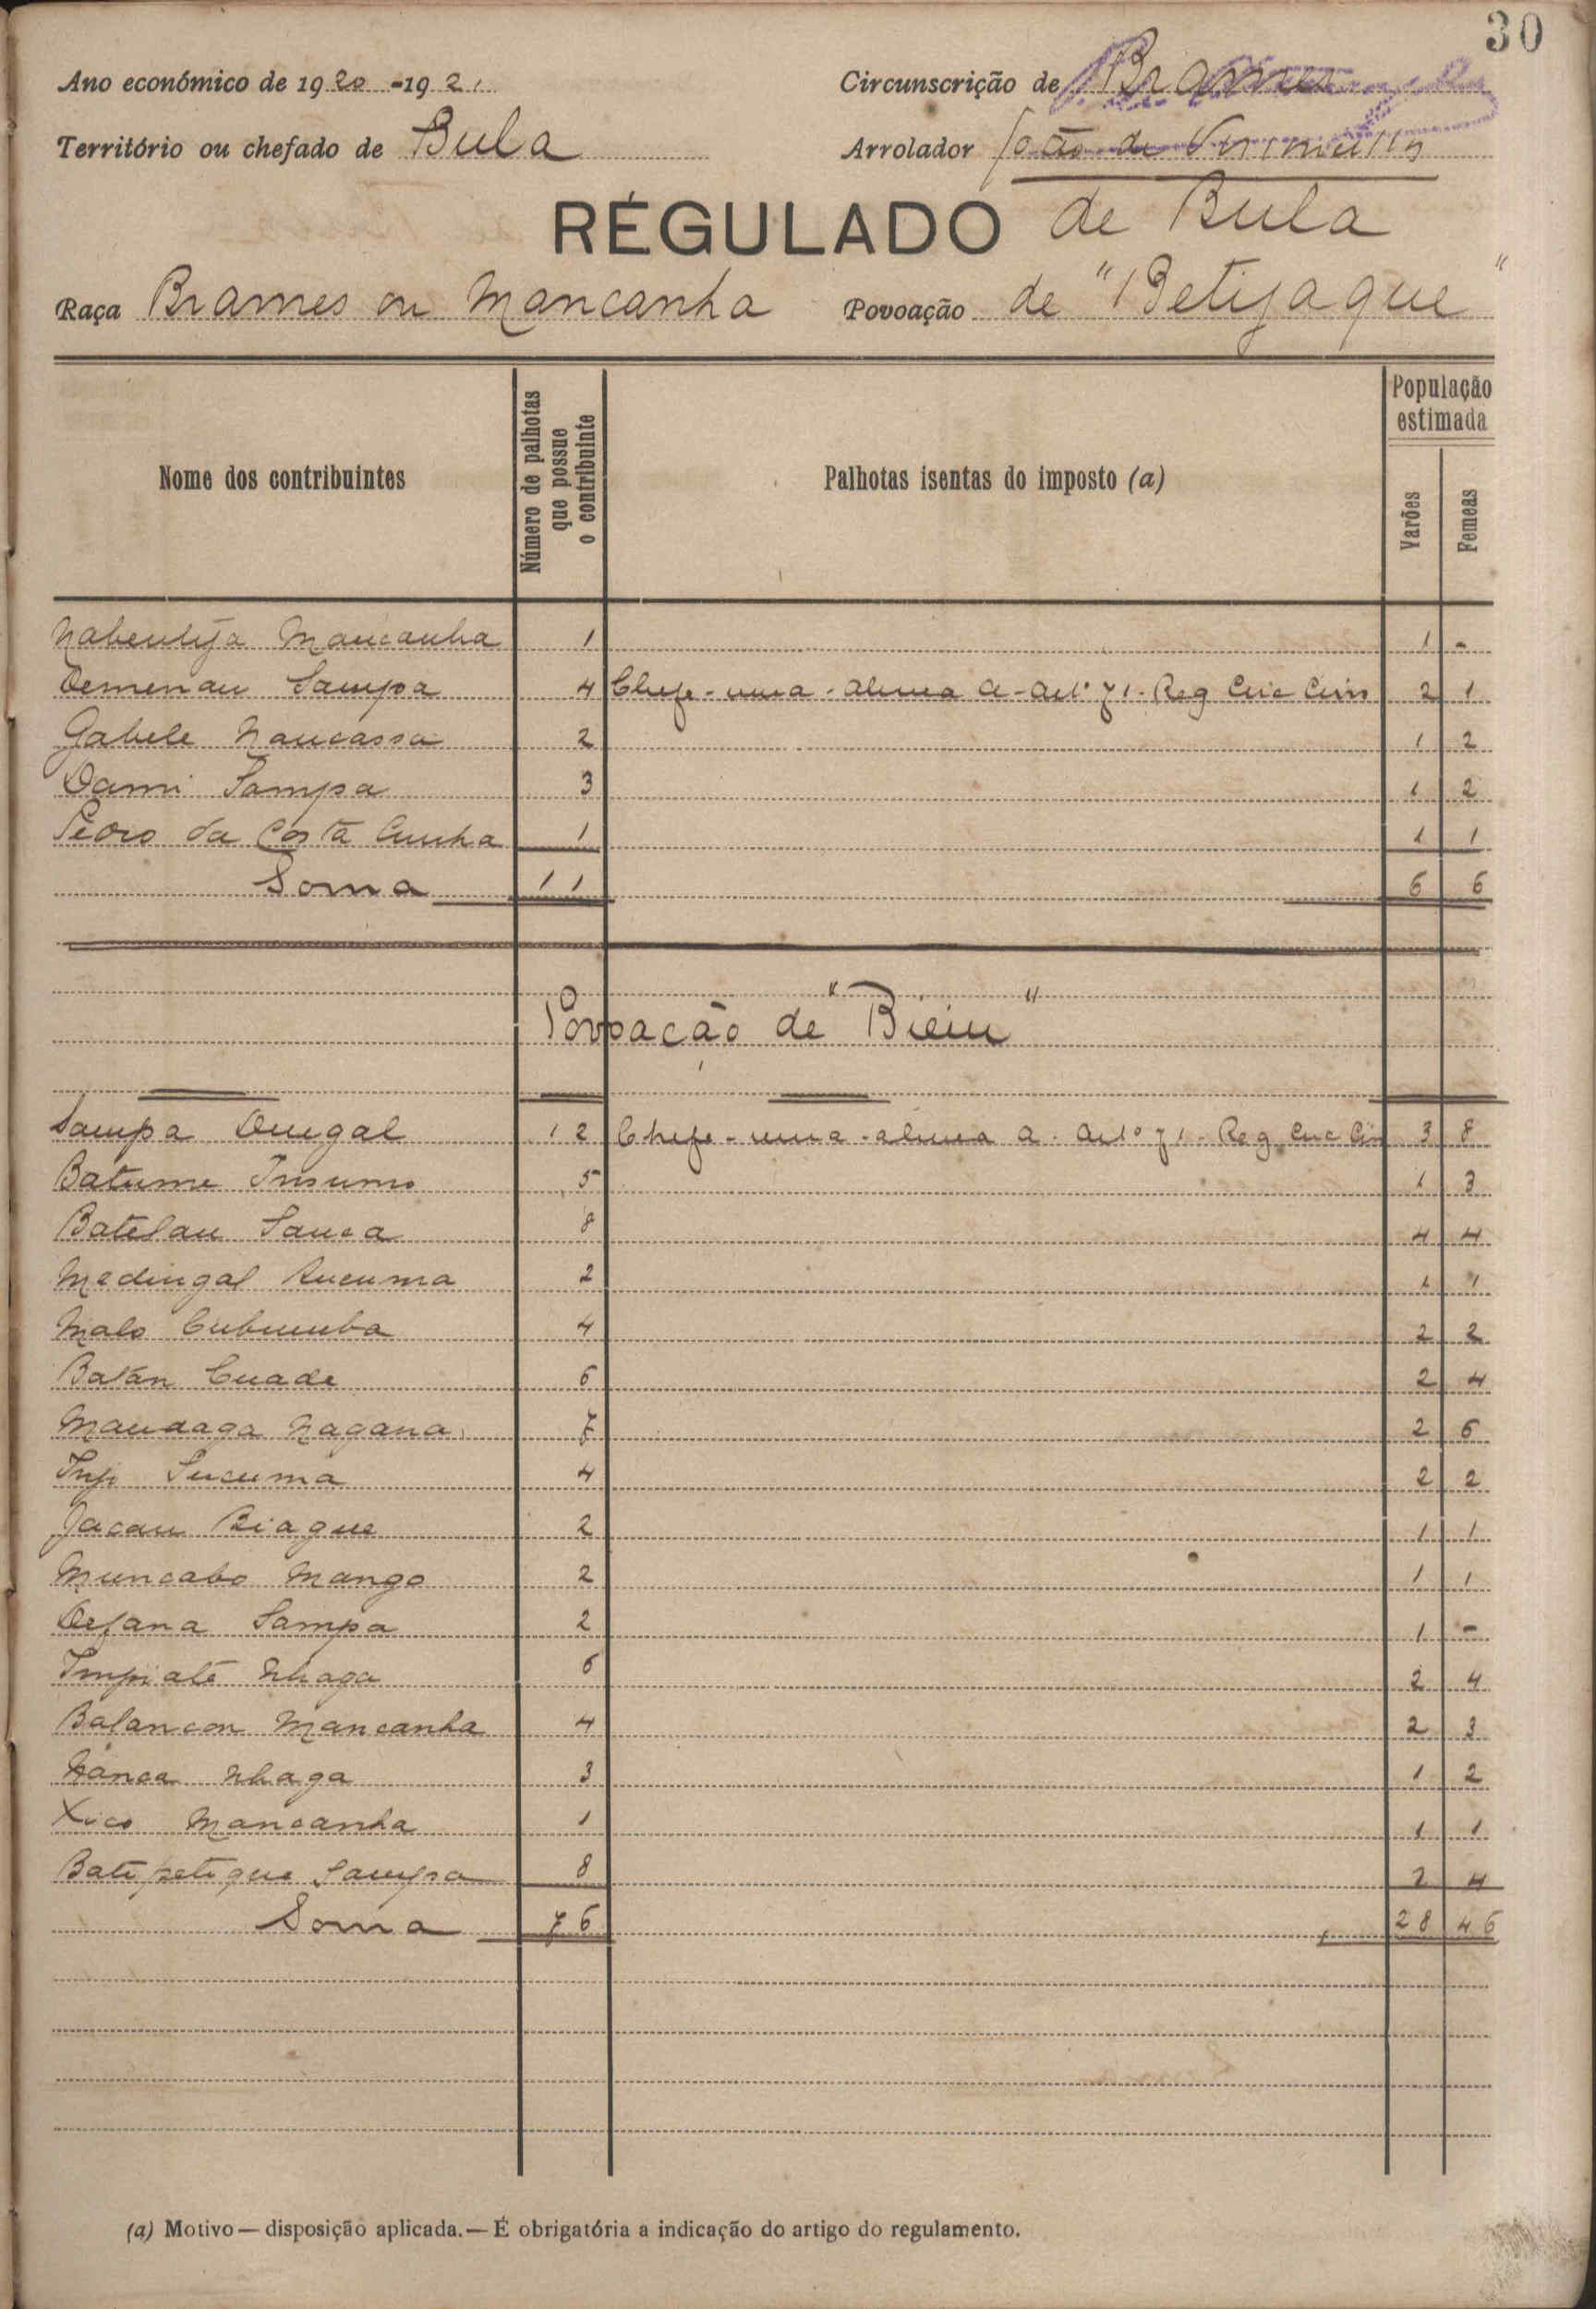 30
Ano económico de 1920-1921 Circunscrição de Brames
Território ou chefado de Bula Arrolador João de
RÉGULADO de Bula
Raça Brames ou Mancanha Povoação de "Betijaque"
Nome dos contribuintes Número de palhotas que possue o contribuinte Palhotas isentas do imposto (a) População estimada Varões Femeas
Mancanha 1 1 -
Demenau Sampa 4 Chefe - uma - alinea a - artº 71 - Reg Circ Civis 2 1
Gabele Naucassa 2 1 2
Dami Sampa 3 1 2
Pedro da Costa Cunha 1 1 1
Soma 11 6 6
Povoação de "Bieiu"
Sampa Dungal 12 Chefe - uma - alinea a - artº 71 - Reg Circ Civ 3 8
Batume Insumo 5 1 3
Batelau Sanca 8 4 4
Madingal 2 1 1
Malo 4 2 2
Balán Cuade 6 2 4
Mandaga Nagana 7 2 6
Sucuma 4 2 2
Jacau Biague 2 1 1
Muncabo Mango 2 1 1
Defana Sampa 2 1 -
Impiaté Nhaga 6 2 4
Balancon Mancanha 4 2 3
Nanca Nhaga 3 1 2
Xico Mancanha 1 1 1
Sampa 8 2 4
Soma 76 28 46
(a) Motivo — disposição aplicada. — É obrigatória a indicação do artigo do regulamento.